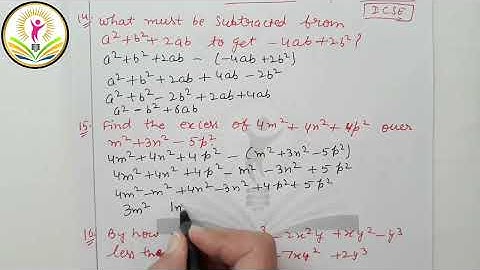 ICSE
14. What must be subtracted from
a² + b² + 2ab to get - 4ab + 2b² ?
a² + b² + 2ab - (-4ab + 2b²)
a² + b² + 2ab + 4ab - 2b²
a² + b² - 2b² + 2ab + 4ab
a² - b² + 6ab
15. Find the excess of 4m² + 4n² + 4p² over
m² + 3n² - 5p²
4m² + 4n² + 4p² - (m² + 3n² - 5p²)
4m² + 4n² + 4p² - m² - 3n² + 5p²
4m² - m² + 4n² - 3n² + 4p² + 5p²
3m² 1n
16. By how - 2x²y + xy² - y³
less tha - 7xy² + 2y³